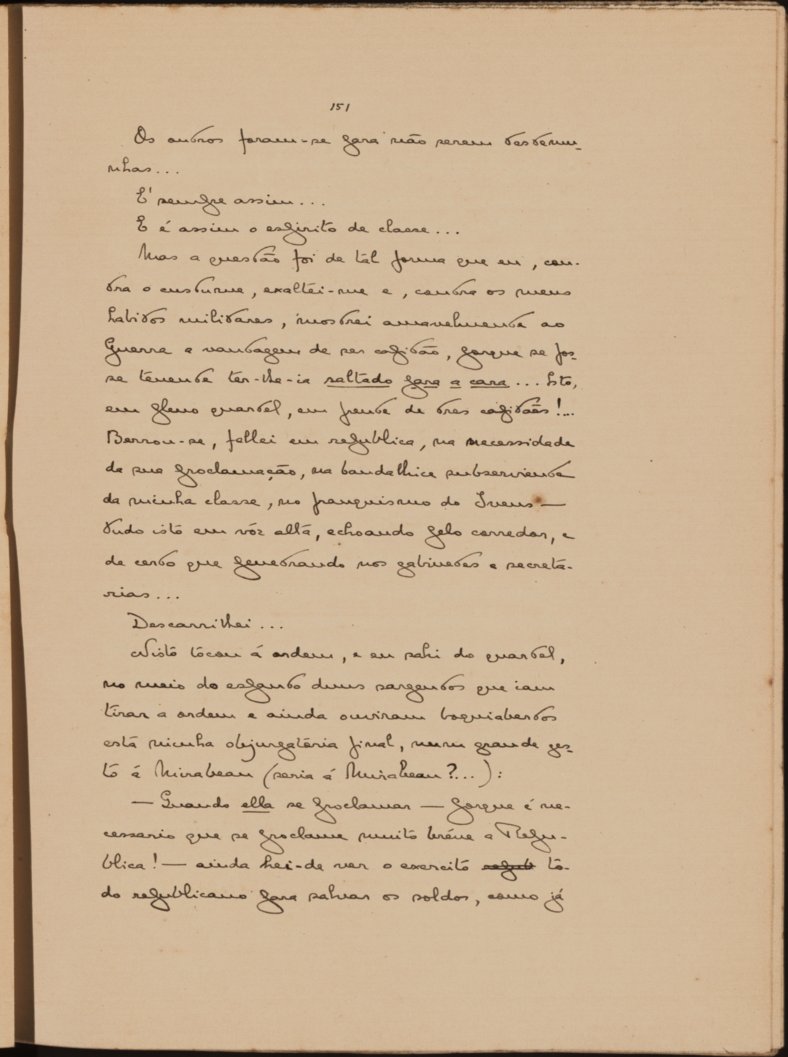 151
Os outros foram-se para não serem testemu-
nhas...
E' sempre assim...
E é assim o espirito de classe...
Mas a questão foi de tàl forma que eu, con-
tra o custume, exaltei-me e, contra os meus
habitos militares, mostrei amavelmente ao
Guerra a vantagem de ser capitão, porque se fos-
se tenente ter-lhe-ia saltado para a cara... Isto,
em pleno quartel, em frente de tres capitães!...
Berrou-se, fallei em republica, na necessidade
da sua proclamação, na bandalhice subserviente
da minha classe, no franquismo do Ivens —
tudo isto em vóz alta, echoando pelo corredor, e
de certo que penetrando nos gabinetes e secreta-
rias...
Descarrilhei...
Nistò tòcou á ordem, e eu sahi do quartél,
no meio do espanto duns sargentos que iam
tirar a ordem e ainda ouviram boquiabertos
està minha objurgatòria final, num grande ges-
tò á Mirabeau (seria á Mirabeau?...):
— Quando ella se proclamar — porque é ne-
cessario que se proclame muitò bréve a Repu-
blica! — ainda hei-de ver o exercitò repub tò-
do republicano para salvar os soldos, como já